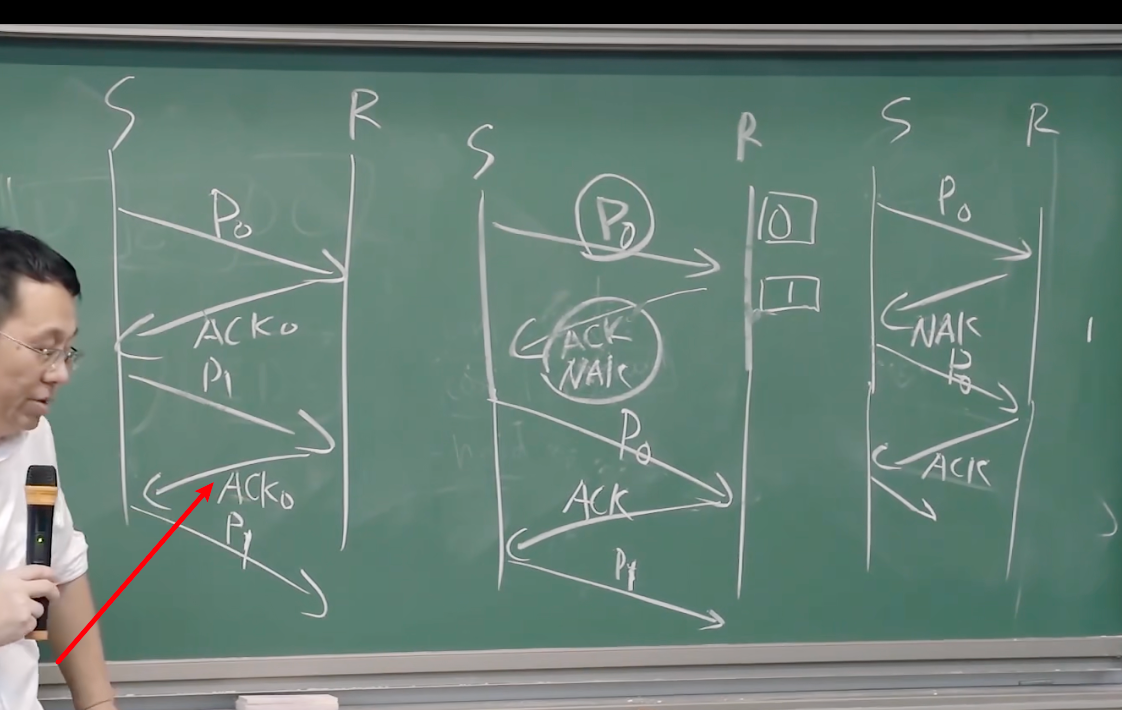 S
R
P0
ACK0
P1
ACK0
P1
S
R
P0
0
1
ACK
NAK
P0
ACK
P1
S
R
P0
NAK
P0
ACK